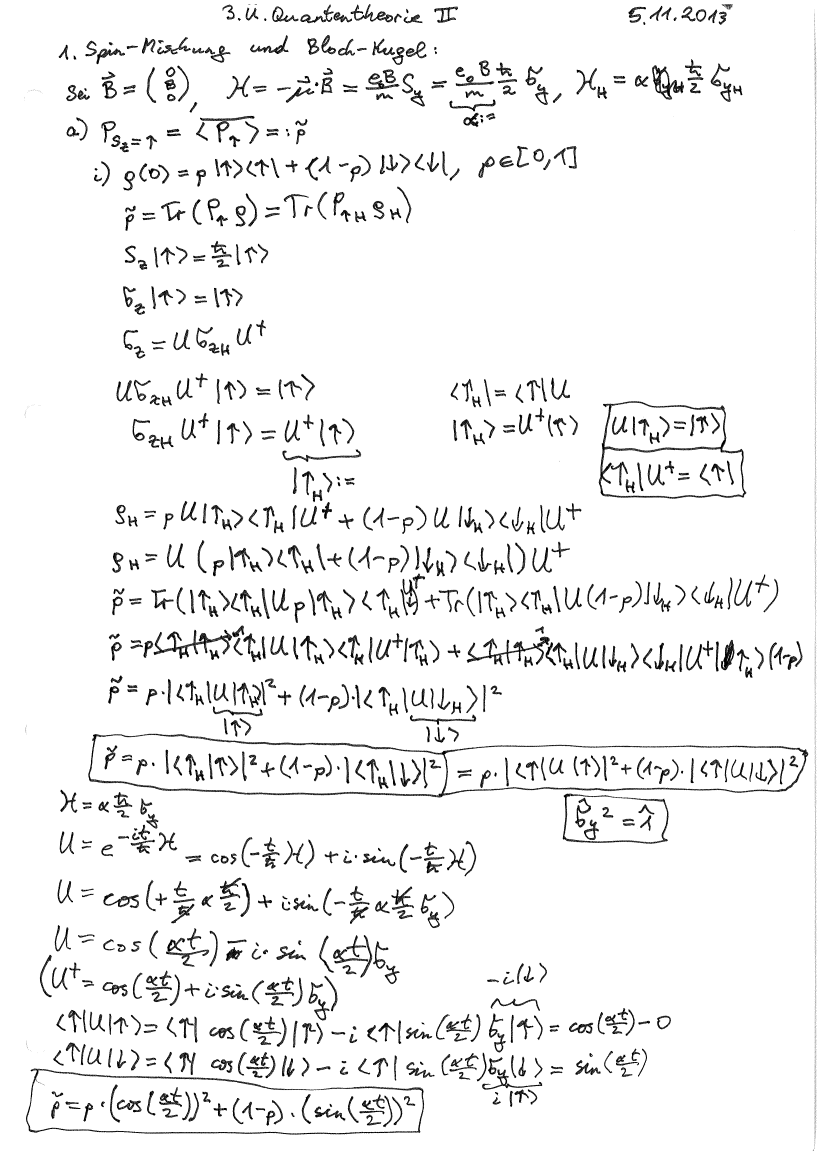 3. Ü. Quantentheorie II 5.11.2013
1. Spin-Mischung und Bloch-Kugel:
Sei B⃗ = (0 B 0), ℋ = -μ⃗·B⃗ = e₀B/m S_y = e₀B/m ħ/2 σ_y, ℋ_H = α ħ/2 σ_yH
α:=
a) P_{S_z=↑} = <P_↑> =: p̃
i) ρ(0) = p |↑><↑| + (1-p) |↓><↓|, p∈[0,1]
p̃ = Tr(P_↑ ρ) = Tr(P_↑H ρ_H)
S_z |↑> = ħ/2 |↑>
σ_z |↑> = |↑>
σ_z = U σ_zH U†
U σ_zH U† |↑> = |↑> <↑_H| = <↑|U
σ_zH U† |↑> = U† |↑> |↑_H> = U†|↑> U|↑_H> = |↑>
|↑_H> := <↑_H|U† = <↑|
ρ_H = p U|↑_H><↑_H|U† + (1-p) U|↓_H><↓_H|U†
ρ_H = U (p|↑_H><↑_H| + (1-p)|↓_H><↓_H|) U†
p̃ = Tr(|↑_H><↑_H|U p|↑_H><↑_H|U†) + Tr(|↑_H><↑_H|U(1-p)|↓_H><↓_H|U†)
p̃ = p <↑_H|↑_H> 1 <↑_H|U|↑_H><↑_H|U†|↑_H> + <↑_H|↑_H> 1 <↑_H|U|↓_H><↓_H|U†|↑_H>(1-p)
p̃ = p·|<↑_H|U|↑_H>|² + (1-p)·|<↑_H|U|↓_H>|²
|↑> |↓>
p̃ = p·|<↑_H|↑>|² + (1-p)·|<↑_H|↓>|² = p·|<↑|U|↑>|² + (1-p)·|<↑|U|↓>|²
ℋ = α ħ/2 σ_y σ̂_y² = 1̂
U = e^{-it/ħ ℋ} = cos(-t/ħ ℋ) + i·sin(-t/ħ ℋ)
U = cos(+t/ħ α ħ/2) + i sin(-t/ħ α ħ/2 σ_y)
U = cos(αt/2) - i·sin(αt/2) σ_y
(U† = cos(αt/2) + i·sin(αt/2) σ_y) -i|↓>
<↑|U|↑> = <↑| cos(αt/2)|↑> - i <↑|sin(αt/2) σ_y|↑> = cos(αt/2) - 0
<↑|U|↓> = <↑| cos(αt/2)|↓> - i <↑| sin(αt/2) σ_y|↓> = sin(αt/2)
i|↑>
p̃ = p·(cos(αt/2))² + (1-p)·(sin(αt/2))²